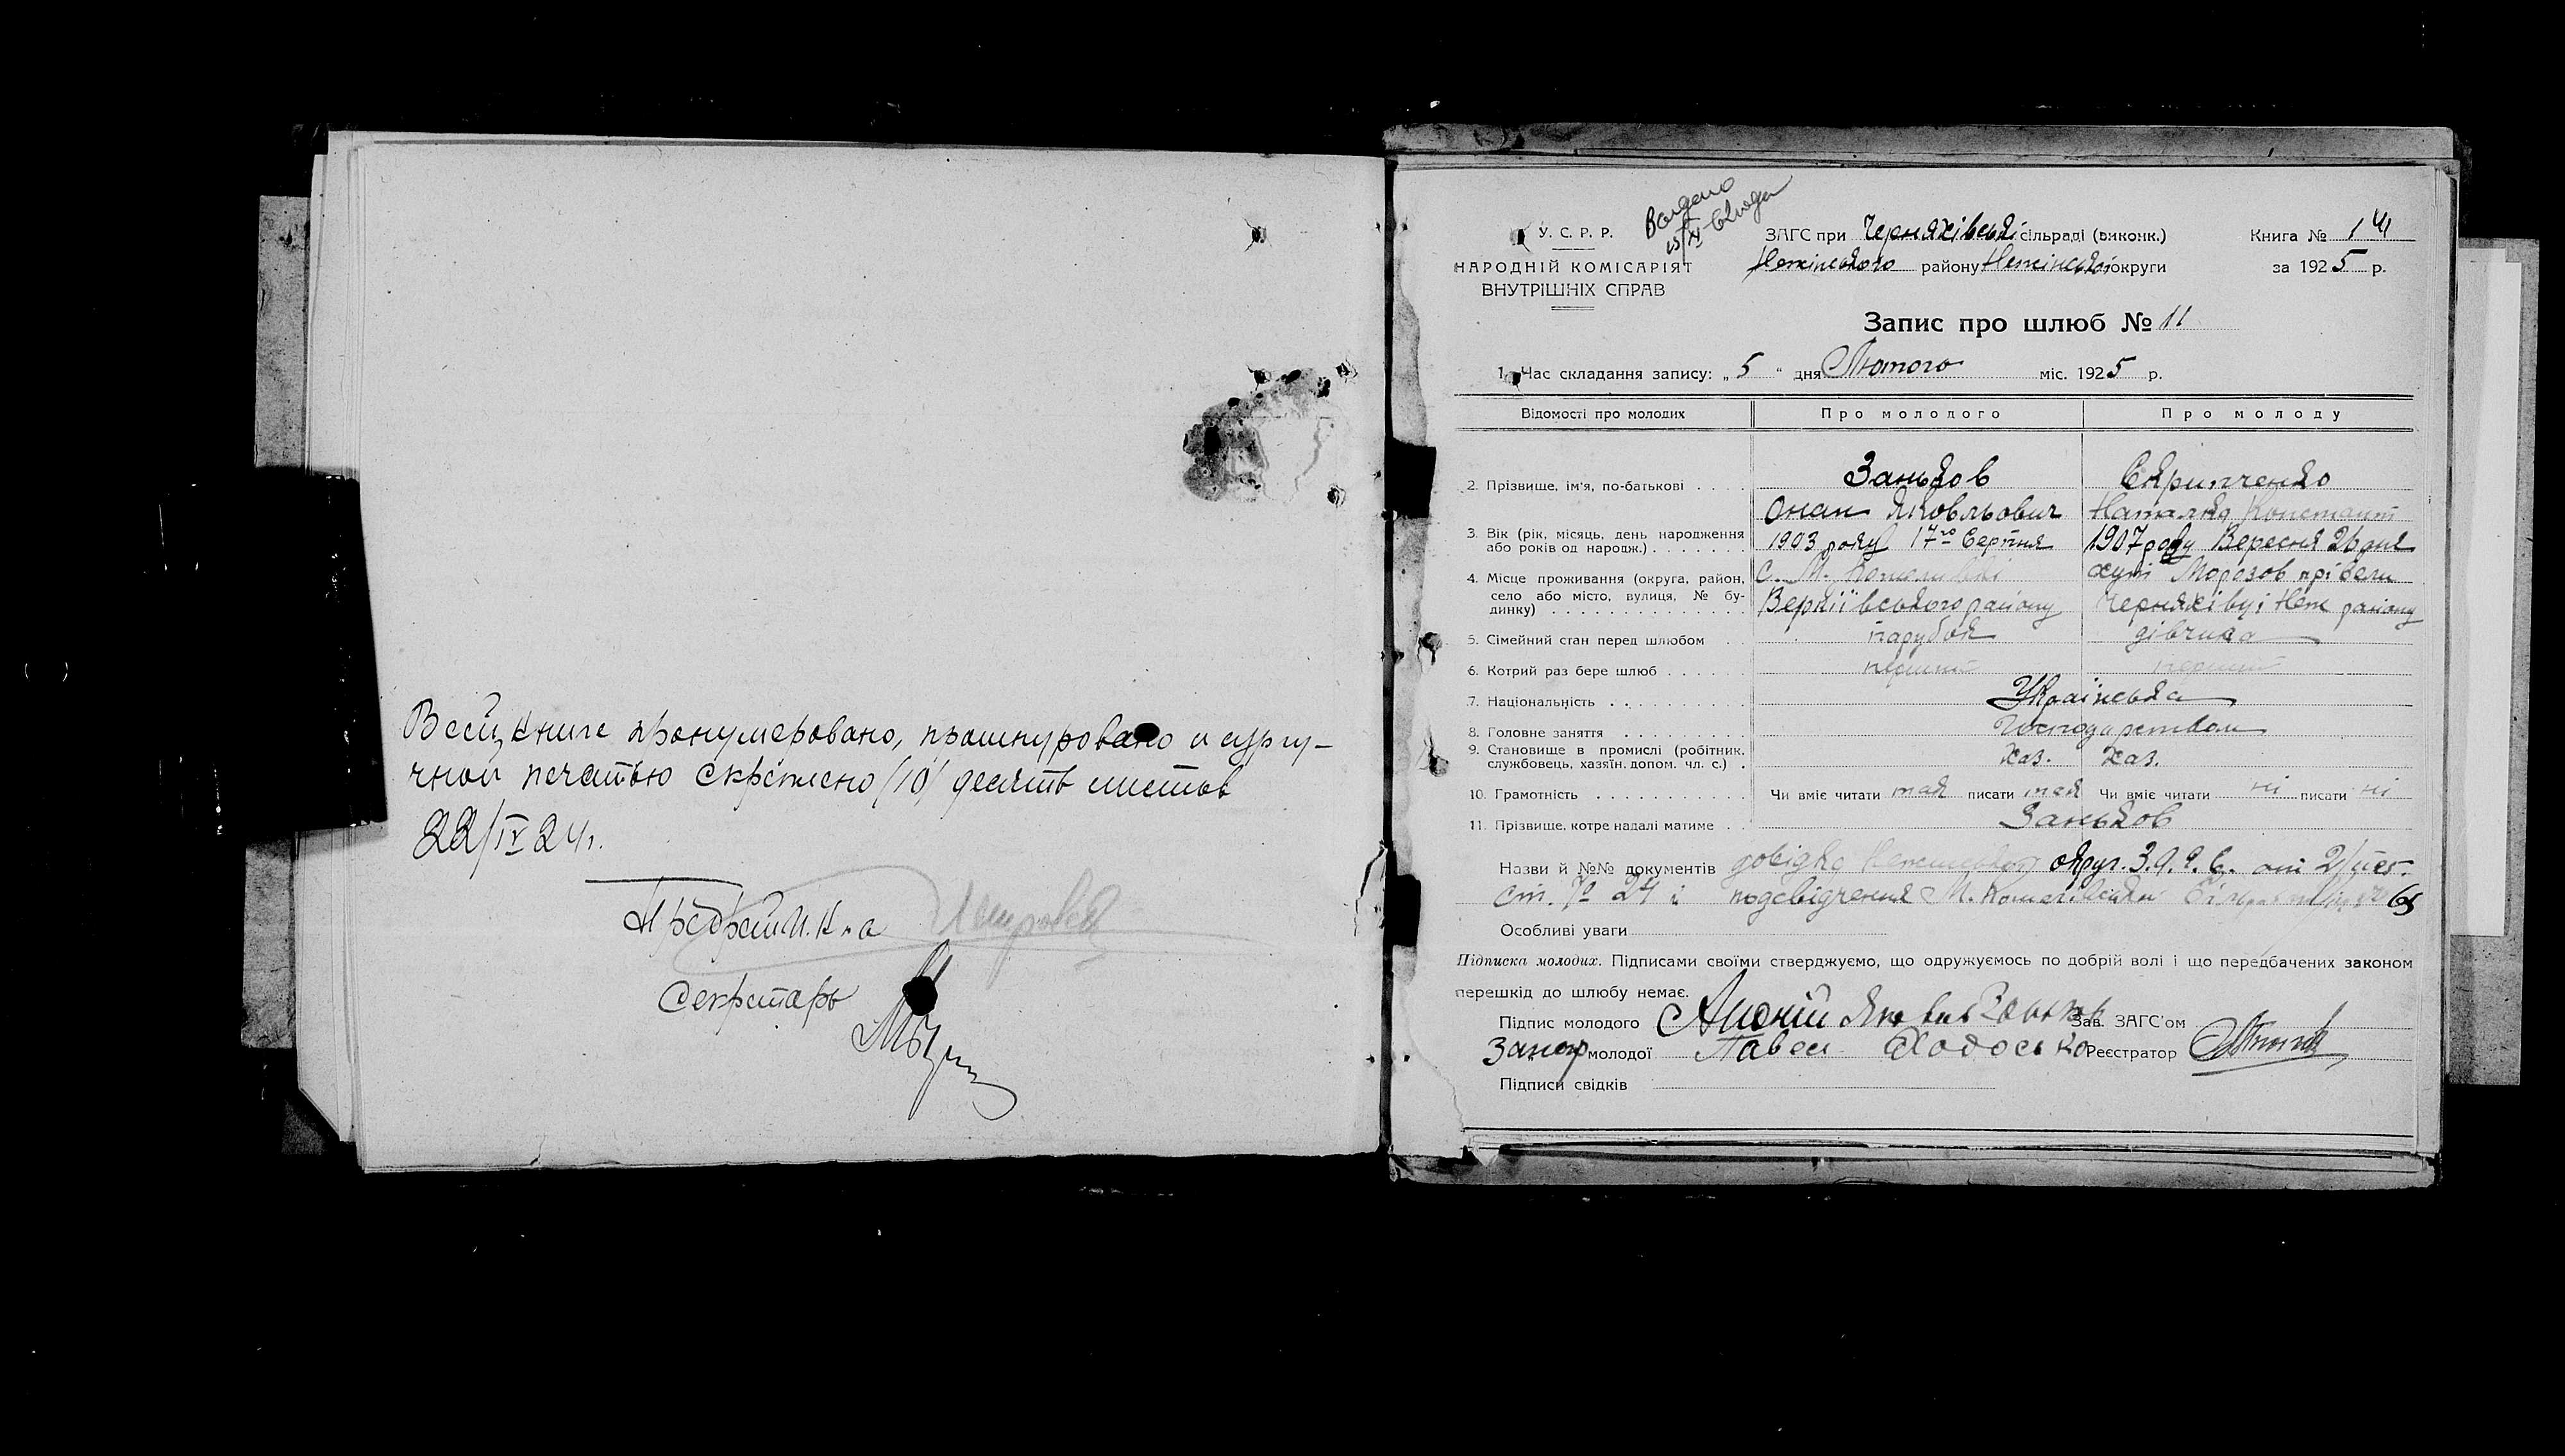 Всей книге пронумеровано, прошнуровано и сургу-
чной печатью скреплено (10) десять листов
22/IV 24 г.
Секретарь
У. С. Р. Р.
НАРОДНІЙ КОМІСАРІЯТ
ВНУТРІШНІХ СПРАВ
ЗАГС при Черняхівській сільраді (виконк.)
Неженського району Неженської округи
Книга № 14
за 1925 р.
Запис про шлюб № 11
1. Час складання запису: „ 5 " дня Лютого міс. 1925 р.
Відомості про молодих Про молодого Про молоду
2. Прізвище, ім'я, по-батькові . . . Заньков Скрипченко
Онан Яковльович Наталка Констант
3. Вік (рік, місяць, день народження
або років од народж.) . . . . . . . 1903 року 17го Серпня 1907 року Вересня 26 дня
4. Місце проживання (округа, район,
село або місто, вулиця, № бу-
динку) . . . . . . . . . . . . . . с. М. хут Морозов прі
Веркіївського району Черняхівці Неж району
5. Сімейний стан перед шлюбом . . парубок дівчина
6. Котрий раз бере шлюб . . . . . . перший перший
7. Національність . . . . . . . . . . Українська
8. Головне заняття . . . . . . . . . Господарством
9. Становище в промислі (робітник,
службовець, хазяїн, допом. чл. с.) . хаз. хаз.
10. Грамотність . . . . . . . . . . . Чи вміє читати так писати так Чи вміє читати ні писати ні
11. Прізвище, котре надалі матиме . . Заньков
Назви й №№ документів довідка округ. З.А.Г.С. от 2/II 25.
ст. № 24 і подсвідчення М. 65
Особливі уваги
Підписка молодих. Підписами своїми стверджуємо, що одружуємось по добрій волі і що передбачених законом
перешкід до шлюбу немає.
Підпис молодого Зав. ЗАГС'ом
молодої Павел Ходосько Реєстратор
Підписи свідків